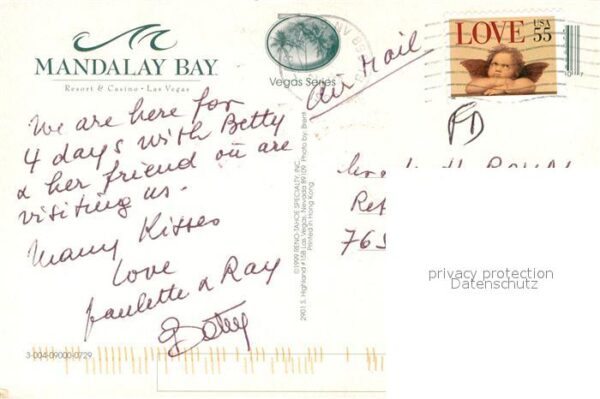 MANDALAY BAY
Resort & Casino • Las Vegas
Vegas Series
Air Mail
LOVE USA 55
We are here for
4 days with Betty
& her friend ou are
visiting us.
Many Kisses
Love
Paulette & Ray
Betty
3-004-09000-0729
©1999 RENO-TAHOE SPECIALTY, INC.
2901 S. Highland #15B Las Vegas, Nevada 89109 Photo by: Brent
Printed in Hong Kong
PD
765
privacy protection
Datenschutz